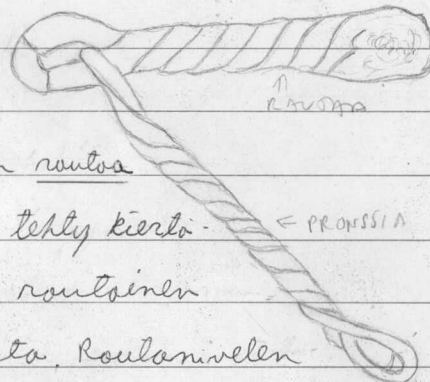 RAUTAA
n rautaa
tehty kierto-
← PRONSSIA
rautainen
ta. Rautanivelen